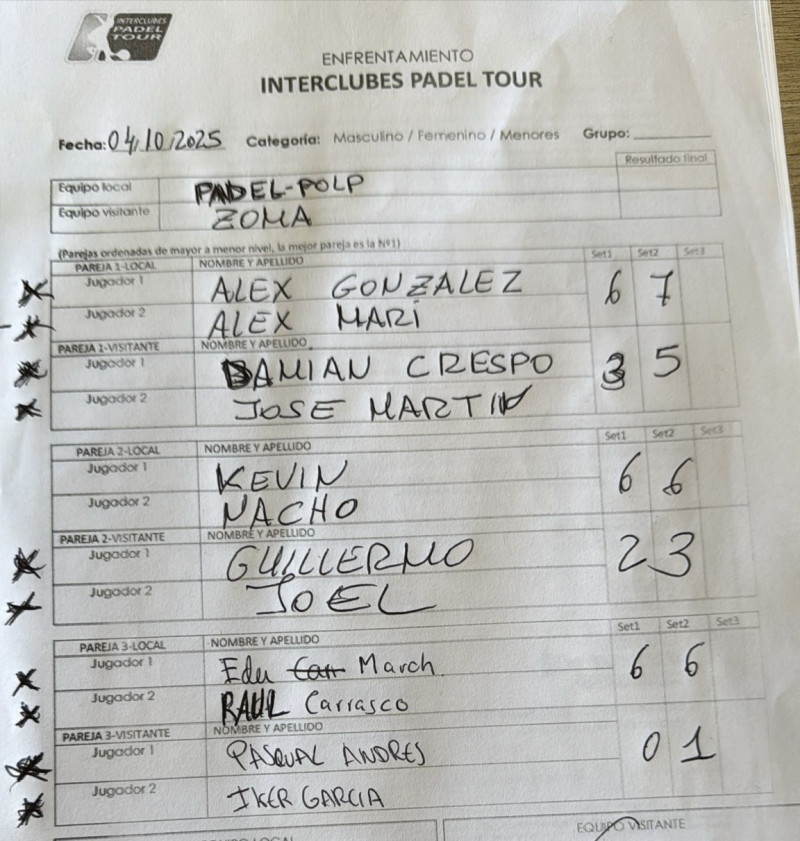 INTERCLUBES
PADEL
TOUR
ENFRENTAMIENTO
INTERCLUBES PADEL TOUR
Fecha: 04/10/2025 Categoría: Masculino / Femenino / Menores Grupo:
Resultado final
Equipo local PADEL-POLP
Equipo visitante ZOMA
(Parejas ordenadas de mayor a menor nivel, la mejor pareja es la Nº1)
PAREJA 1-LOCAL NOMBRE Y APELLIDO Set1 Set2 Set3
Jugador 1 ALEX GONZALEZ 6 7
Jugador 2 ALEX MARÍ
PAREJA 1-VISITANTE NOMBRE Y APELLIDO
Jugador 1 DAMIAN CRESPO 3 5
Jugador 2 JOSE MARTIN
PAREJA 2-LOCAL NOMBRE Y APELLIDO Set1 Set2 Set3
Jugador 1 KEVIN 6 6
Jugador 2 NACHO
PAREJA 2-VISITANTE NOMBRE Y APELLIDO
Jugador 1 GUILLERMO 2 3
Jugador 2 JOEL
PAREJA 3-LOCAL NOMBRE Y APELLIDO Set1 Set2 Set3
Jugador 1 Edu March 6 6
Jugador 2 RAUL Carrasco
PAREJA 3-VISITANTE NOMBRE Y APELLIDO
Jugador 1 PASQUAL ANDRES 0 1
Jugador 2 IKER GARCIA
EQUIPO LOCAL EQUIPO VISITANTE